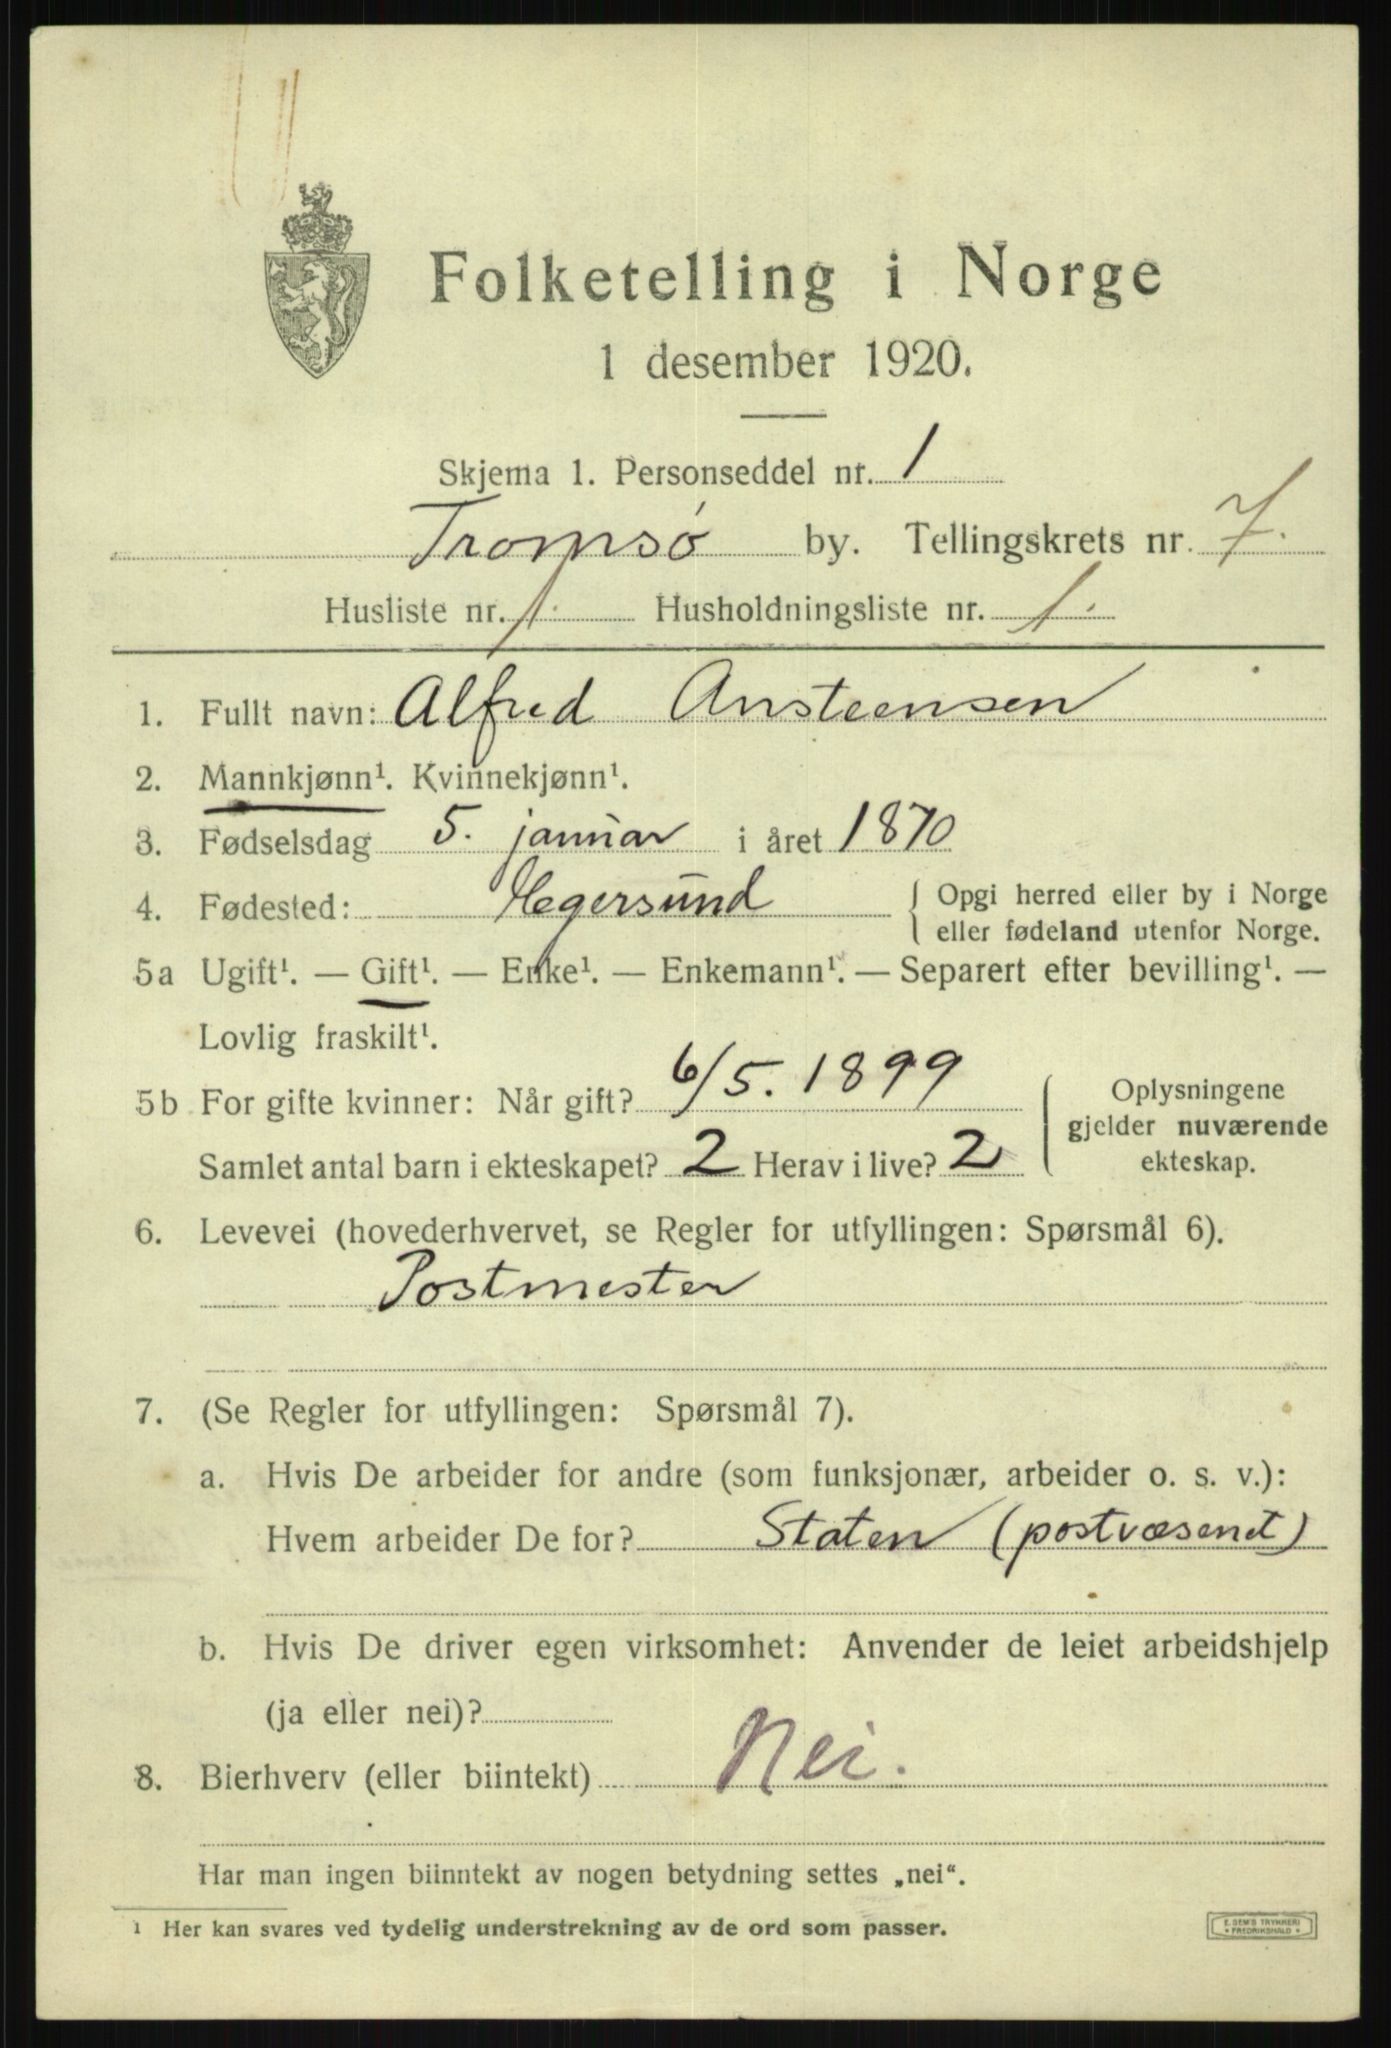 Folketelling i Norge
1 desember 1920.
Skjema 1. Personseddel nr. 1
Tromsø by. Tellingskrets nr. 7.
Husliste nr. 1. Husholdningsliste nr. 1.
1. Fullt navn: Alfred Ansteensen
2. Mannkjønn¹. Kvinnekjønn¹.
3. Fødselsdag 5. januar i året 1870
4. Fødested: Egersund { Opgi herred eller by i Norge
eller fødeland utenfor Norge.
5a Ugift¹. — Gift¹. — Enke¹. — Enkemann¹. — Separert efter bevilling¹. —
Lovlig fraskilt¹.
5b For gifte kvinner: Når gift? 6/5. 1899
Samlet antal barn i ekteskapet? 2 Herav i live? 2
Oplysningene
gjelder nuværende
ekteskap.
6. Levevei (hovederhvervet, se Regler for utfyllingen: Spørsmål 6).
Postmester
7. (Se Regler for utfyllingen: Spørsmål 7).
a. Hvis De arbeider for andre (som funksjonær, arbeider o. s. v.):
Hvem arbeider De for? Staten (postvæsenet)
b. Hvis De driver egen virksomhet: Anvender de leiet arbeidshjelp
(ja eller nei)?
8. Bierhverv (eller biintekt) Nei.
Har man ingen biinntekt av nogen betydning settes „nei“.
1 Her kan svares ved tydelig understrekning av de ord som passer.
E. SEM'S TRYKKERI
• FREDRIKSHALD •